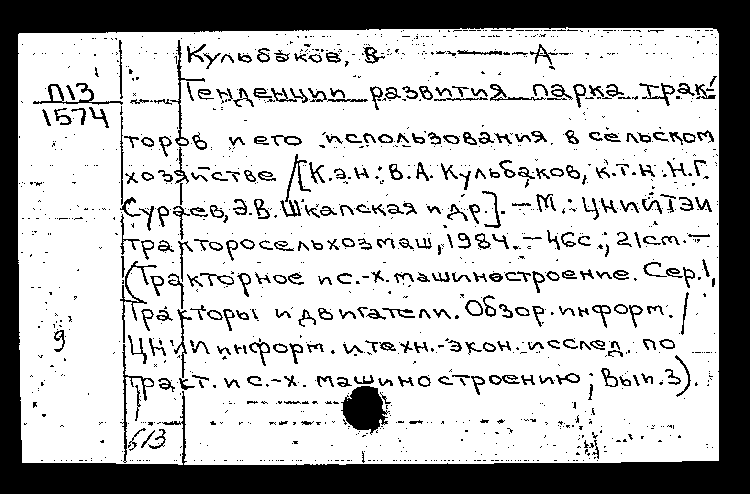 Кульбаков, В. А
П13
1574
Тенденции развития парка трак-
торов и его использования в сельском
хозяйстве / [К.э.н. В.А. Кульбаков, к.т.н. Н.Г.
Сураев, Э.В. Шкапская и др.]. — М.: ЦНИИТЭИ
тракторосельхозмаш, 1984. — 46с.; 21см. —
(Тракторное и с.-х. машиностроение. Сер. 1,
Тракторы и двигатели. Обзор. информ. /
ЦНИИ информ. и техн.-экон. исслед. по
9
тракт. и с.-х. машиностроению; Вып. 3).
613